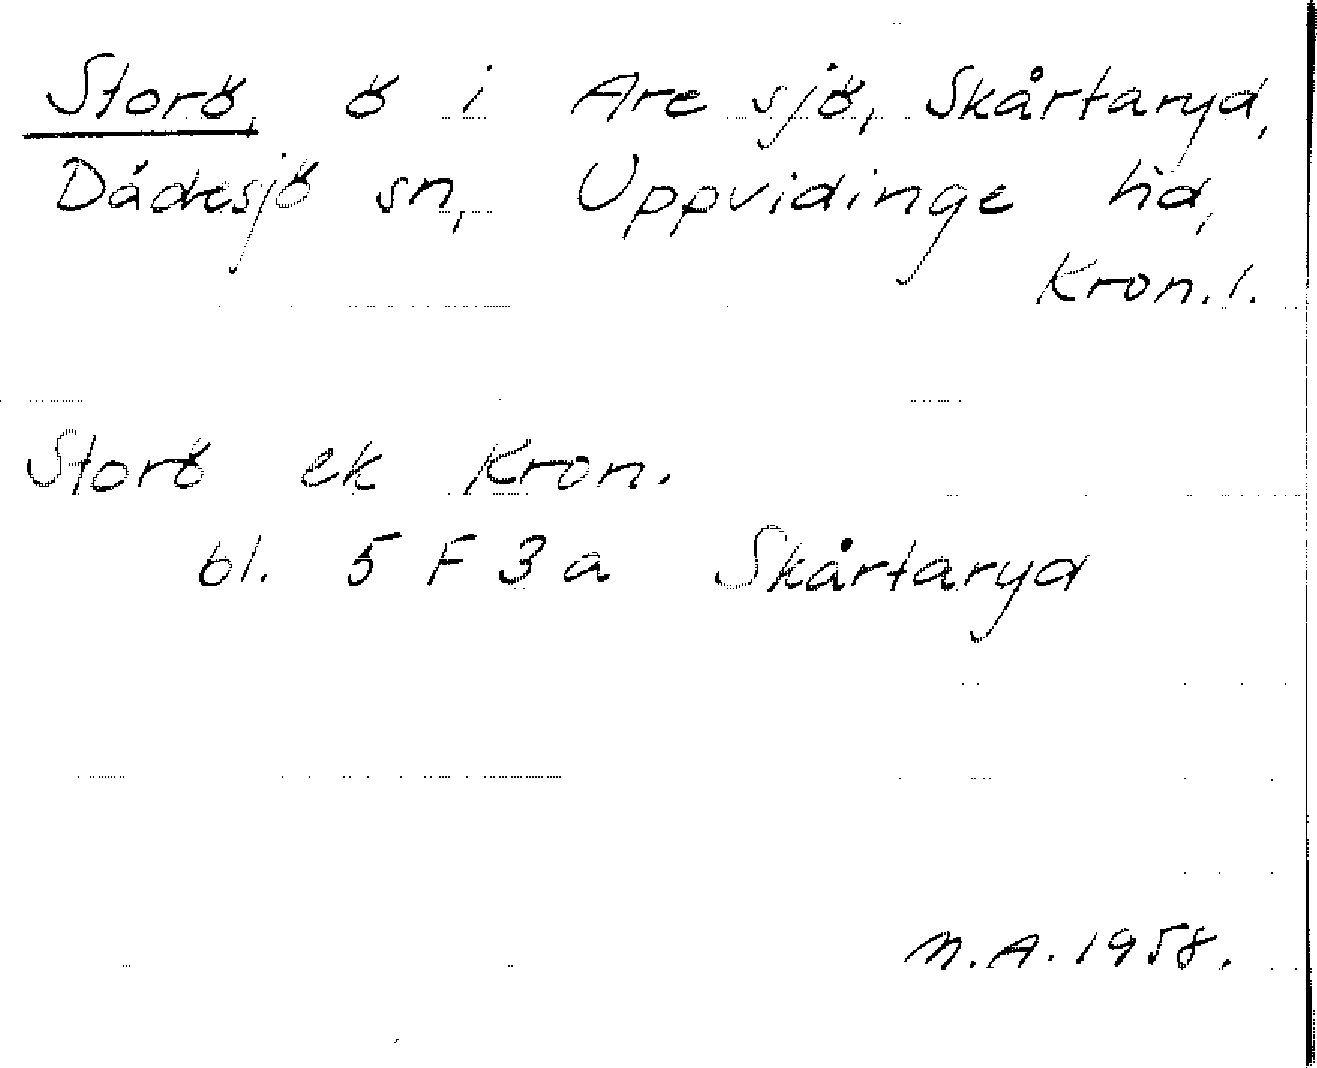 Storö, ö i Åre sjö, Skårtaryd,
Dädesjö sn, Uppvidinge hd,
Kron. l.
Storö ek Kron.
bl. 5 F 3 a Skårtaryd
M.A. 1958.